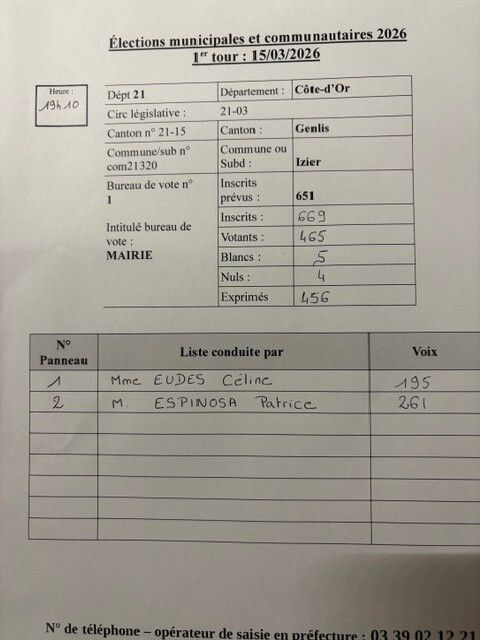 Élections municipales et communautaires 2026
1er tour : 15/03/2026
Heure :
19h10
Dépt 21 Département : Côte-d'Or
Circ législative : 21-03
Canton n° 21-15 Canton : Genlis
Commune/sub n° com21320 Commune ou Subd : Izier
Bureau de vote n° 1 Inscrits prévus : 651
Intitulé bureau de vote : MAIRIE
Inscrits : 669
Votants : 465
Blancs : 5
Nuls : 4
Exprimés 456
N° Panneau Liste conduite par Voix
1 Mme EUDES Céline 195
2 M. ESPINOSA Patrice 261
N° de téléphone – opérateur de saisie en préfecture : 03 39 02 12 21